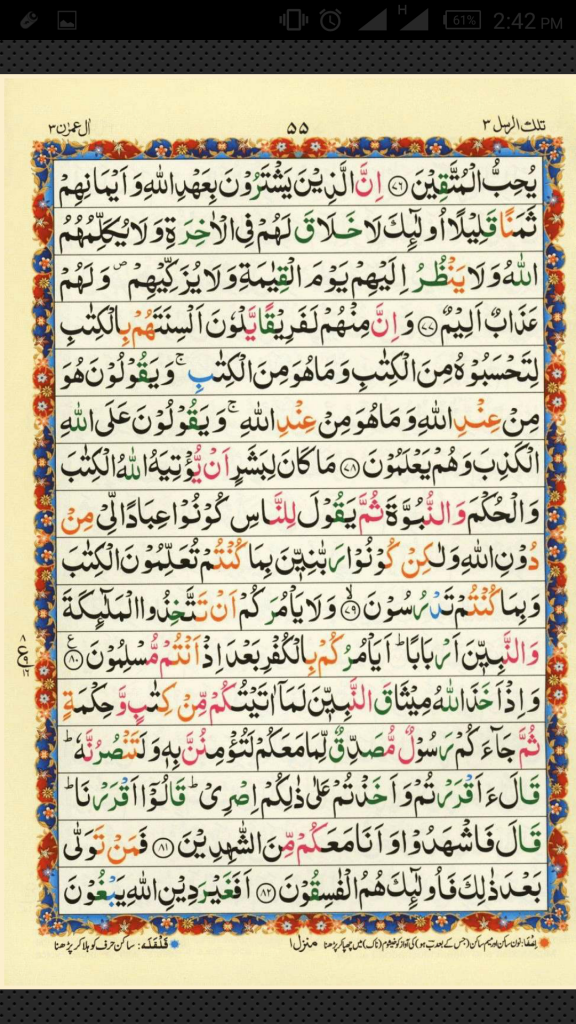 H 61% 2:42 PM
تلك الرسل ٣ ٥٥ اٰل عمرٰن ٣
يُحِبُّ الْمُتَّقِيْنَ ﴿٧٦﴾ اِنَّ الَّذِيْنَ يَشْتَرُوْنَ بِعَهْدِ اللهِ وَ اَيْمَانِهِمْ
ثَمَنًا قَلِيْلًا اُولٰٓئِكَ لَا خَلَاقَ لَهُمْ فِى الْاٰخِرَةِ وَ لَا يُكَلِّمُهُمُ
اللهُ وَ لَا يَنْظُرُ اِلَيْهِمْ يَوْمَ الْقِيٰمَةِ وَ لَا يُزَكِّيْهِمْ ۠ وَ لَهُمْ
عَذَابٌ اَلِيْمٌ ﴿٧٧﴾ وَ اِنَّ مِنْهُمْ لَفَرِيْقًا يَّلْوٗنَ اَلْسِنَتَهُمْ بِالْكِتٰبِ
لِتَحْسَبُوْهُ مِنَ الْكِتٰبِ وَ مَا هُوَ مِنَ الْكِتٰبِ ۚ وَ يَقُوْلُوْنَ هُوَ
مِنْ عِنْدِ اللهِ وَ مَا هُوَ مِنْ عِنْدِ اللهِ ۚ وَ يَقُوْلُوْنَ عَلَى اللهِ
الْكَذِبَ وَ هُمْ يَعْلَمُوْنَ ﴿٧٨﴾ مَا كَانَ لِبَشَرٍ اَنْ يُّؤْتِيَهُ اللهُ الْكِتٰبَ
وَ الْحُكْمَ وَ النُّبُوَّةَ ثُمَّ يَقُوْلَ لِلنَّاسِ كُوْنُوْا عِبَادًا لِّىْ مِنْ
دُوْنِ اللهِ وَ لٰكِنْ كُوْنُوْا رَبّٰنِيّٖنَ بِمَا كُنْتُمْ تُعَلِّمُوْنَ الْكِتٰبَ
وَ بِمَا كُنْتُمْ تَدْرُسُوْنَ ۙ﴿٧٩﴾ وَ لَا يَاْمُرَكُمْ اَنْ تَتَّخِذُوا الْمَلٰٓئِكَةَ
وَ النَّبِيّٖنَ اَرْبَابًا ؕ اَيَاْمُرُكُمْ بِالْكُفْرِ بَعْدَ اِذْ اَنْتُمْ مُّسْلِمُوْنَ ﴿٨٠﴾ ع
وَ اِذْ اَخَذَ اللهُ مِيْثَاقَ النَّبِيّٖنَ لَمَاۤ اٰتَيْتُكُمْ مِّنْ كِتٰبٍ وَّ حِكْمَةٍ
ثُمَّ جَآءَكُمْ رَسُوْلٌ مُّصَدِّقٌ لِّمَا مَعَكُمْ لَتُؤْمِنُنَّ بِهٖ وَ لَتَنْصُرُنَّهٗ ؕ
قَالَ ءَاَقْرَرْتُمْ وَ اَخَذْتُمْ عَلٰى ذٰلِكُمْ اِصْرِىْ ؕ قَالُوْۤا اَقْرَرْنَا ؕ
قَالَ فَاشْهَدُوْا وَ اَنَا مَعَكُمْ مِّنَ الشّٰهِدِيْنَ ﴿٨١﴾ فَمَنْ تَوَلّٰى
بَعْدَ ذٰلِكَ فَاُولٰٓئِكَ هُمُ الْفٰسِقُوْنَ ﴿٨٢﴾ اَفَغَيْرَ دِيْنِ اللهِ يَبْغُوْنَ
منزل ١ قَلْقَلَه: ساکن حرف کو ہلا کر پڑھنا